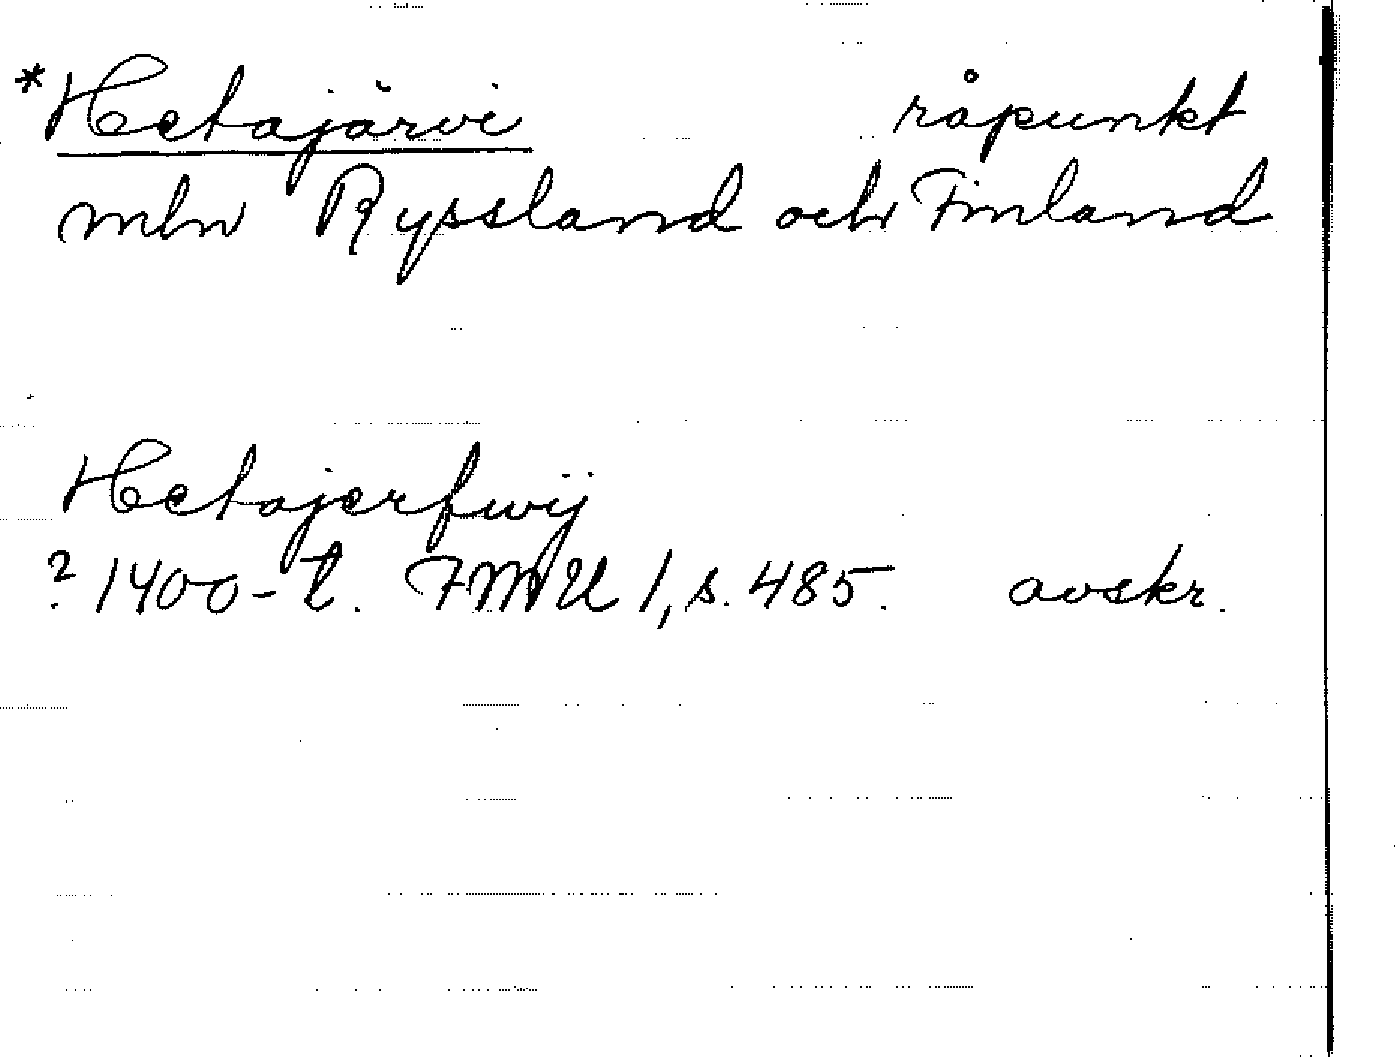 *Hetajärvi råpunkt
mln Ryssland och Finland
Hetajerfwij
? 1400-t. FMU 1, s. 485. avskr.